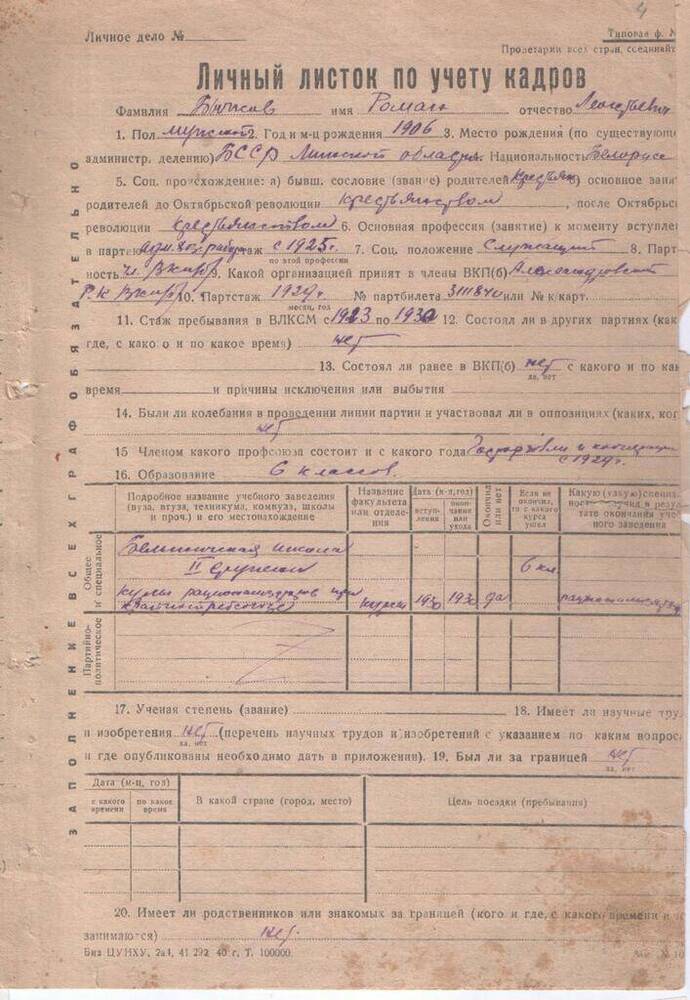 4
Личное дело №
Типовая ф. №
Пролетарии всех стран, соединяйт
Личный листок по учету кадров
Фамилия Бычков имя Роман отчество Леонтьевич
1. Пол мужской 2. Год и м-ц рождения 1906 3. Место рождения (по существующ
администр. делению) БССР Минской области. Национальность Белорусс
5. Соц. происхождение: а) бывш. сословие (звание) родителей Крестьян) основное заня
родителей до Октябрьской революции крестьянством, после Октябрьс
революции крестьянством 6. Основная профессия (занятие) к моменту вступлен
в партию стаж с 1925 г. 7. Соц. положение Служащий 8. Парт
по этой профессии
ность чл. ВКП(б) 9. Какой организацией принят в члены ВКП(б) Александровский
Р.К ВКП(б) 10. Партстаж 1929 г № партбилета 3111840 или № к/карт.
месяц, год
11. Стаж пребывания в ВЛКСМ с 1923 по 1930 12. Состоял ли в других партиях (как
где, с како о и по какое время) нет
13. Состоял ли ранее в ВКП(б) нет с какого и по как
да, нет
время и причины исключения или выбытия
14. Были ли колебания в проведении линии партии и участвовал ли в оппозициях (каких, ког
нет
15 Членом какого профсоюза состоит и с какого года Госторговли и кооперации
с 1929 г.
16. Образование 6 классов.
Подробное название учебного заведения (вуза, втуза, техникума, комвуза, школы и проч.) и его местонахождение
Название факультета или отделения
Дата (м-ц, год)
вступления
окончание или ухода
Окончил или нет
Если не окончил, то с какого курса ушел
Какую (узкую) специа
ность получил в резул
тате окончания учеб
ного заведения
Общее и специальное
школа
II ступени
6 кл
курсы рационализаторов при
курсы 1930 1930 да
Партийно-политическое
17. Ученая степень (звание) 18. Имеет ли научные тру
и изобретения нет (перечень научных трудов и изобретений с указанием по каким вопрос
да, нет
и где опубликованы необходимо дать в приложении). 19. Был ли за границей нет
да, нет
Дата (м-ц, год)
с какого времени
по какое время
В какой стране (город, место)
Цель поездки (пребывания)
20. Имеет ли родственников или знакомых за границей (кого и где, с какого времени и
занимаются) нет.
Биз ЦУНХУ, 2а1, 41 292 40 г. Т. 100000.
ЗАПОЛНЕНИЕ ВСЕХ ГРАФ ОБЯЗАТЕЛЬНО